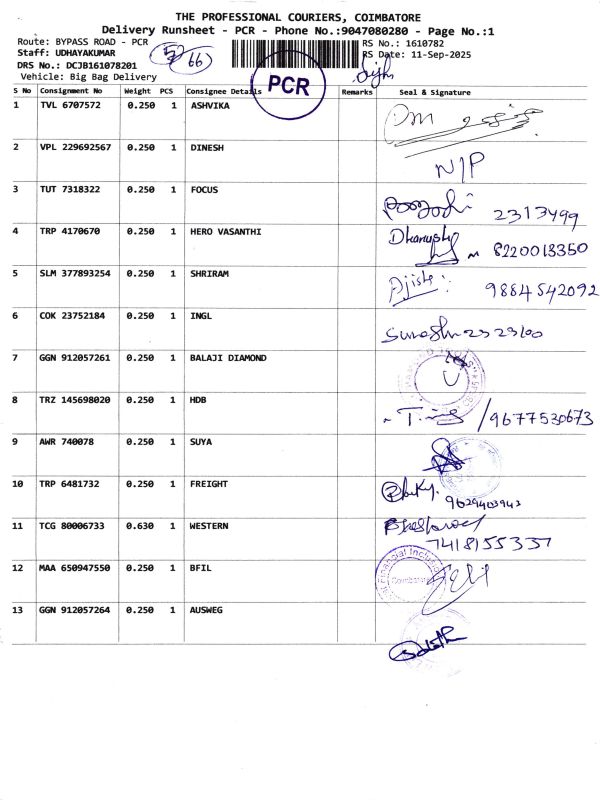 THE PROFESSIONAL COURIERS, COIMBATORE
Delivery Runsheet - PCR - Phone No.:9047080280 - Page No.:1
Route: BYPASS ROAD - PCR
Staff: UDHAYAKUMAR
DRS No.: DCJB161078201
Vehicle: Big Bag Delivery
66
PCR
RS No.: 1610782
RS Date: 11-Sep-2025
S No Consignment No Weight PCS Consignee Details Remarks Seal & Signature
1 TVL 6707572 0.250 1 ASHVIKA
2 VPL 229692567 0.250 1 DINESH N/P
3 TUT 7318322 0.250 1 FOCUS 2313499
4 TRP 4170670 0.250 1 HERO VASANTHI 8220013350
5 SLM 377893254 0.250 1 SHRIRAM 9884542092
6 COK 23752184 0.250 1 INGL
7 GGN 912057261 0.250 1 BALAJI DIAMOND
8 TRZ 145698020 0.250 1 HDB /9677530673
9 AWR 740078 0.250 1 SUYA
10 TRP 6481732 0.250 1 FREIGHT 9629403943
11 TCG 80006733 0.630 1 WESTERN 7418155337
12 MAA 650947550 0.250 1 BFIL Financial Coimbatore
13 GGN 912057264 0.250 1 AUSWEG